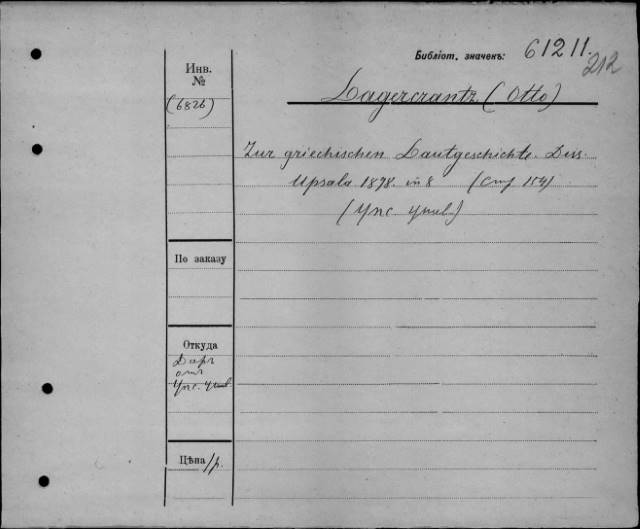 Библіот. значенъ: 61211.
212
Инв.
№
(6826)
Lagercrantz (Otto)
Zur griechischen Lautgeschichte. Diss.
Upsala 1898. in 8 (стр 154)
(Упс. унив.)
По заказу
Откуда
Даръ
отъ
Упс. унив.
Цѣна 1 р.